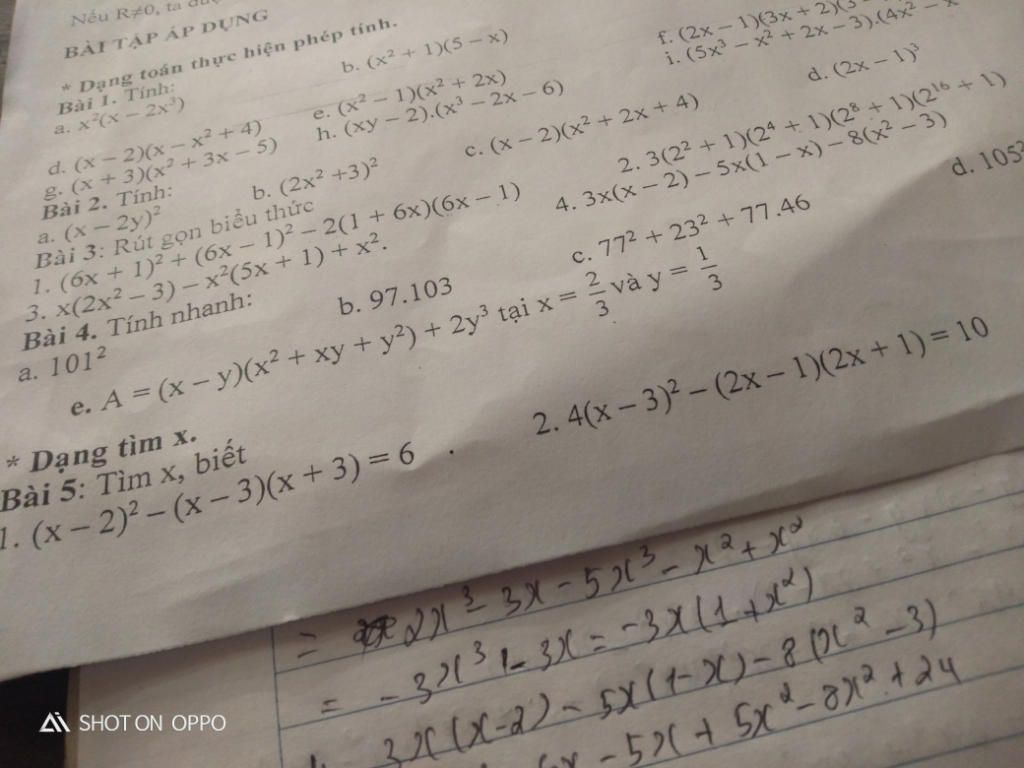 Nếu R≠0, ta
BÀI TẬP ÁP DỤNG
* Dạng toán thực hiện phép tính.
Bài 1. Tính:
a. x²(x – 2x³) b. (x² + 1)(5 – x)
d. (x – 2)(x – x² + 4) e. (x² – 1)(x² + 2x) f. (2x – 1)(3x + 2)(3
g. (x + 3)(x² + 3x – 5) h. (xy – 2).(x³ – 2x – 6) i. (5x³ – x² + 2x – 3).(4x² – x
Bài 2. Tính:
a. (x – 2y)² b. (2x² +3)² c. (x – 2)(x² + 2x + 4) d. (2x – 1)³
Bài 3: Rút gọn biểu thức
1. (6x + 1)² + (6x – 1)² – 2(1 + 6x)(6x – 1) 2. 3(2² + 1)(2⁴ + 1)(2⁸ + 1)(2¹⁶ + 1)
3. x(2x² – 3) – x²(5x + 1) + x². 4. 3x(x – 2) – 5x(1 – x) – 8(x² – 3)
Bài 4. Tính nhanh:
a. 101² b. 97.103 c. 77² + 23² + 77.46 d. 105²
e. A = (x – y)(x² + xy + y²) + 2y³ tại x = 2/3 và y = 1/3
* Dạng tìm x.
Bài 5: Tìm x, biết
1. (x – 2)² – (x – 3)(x + 3) = 6 . 2. 4(x – 3)² – (2x – 1)(2x + 1) = 10
= 2x³ – 3x – 5x³ – x² + x²
= –3x³ – 3x = –3x(1 + x²)
3x(x–2) – 5x(1–x) – 8(x² – 3)
– 5x + 5x² – 8x² + 24
SHOT ON OPPO